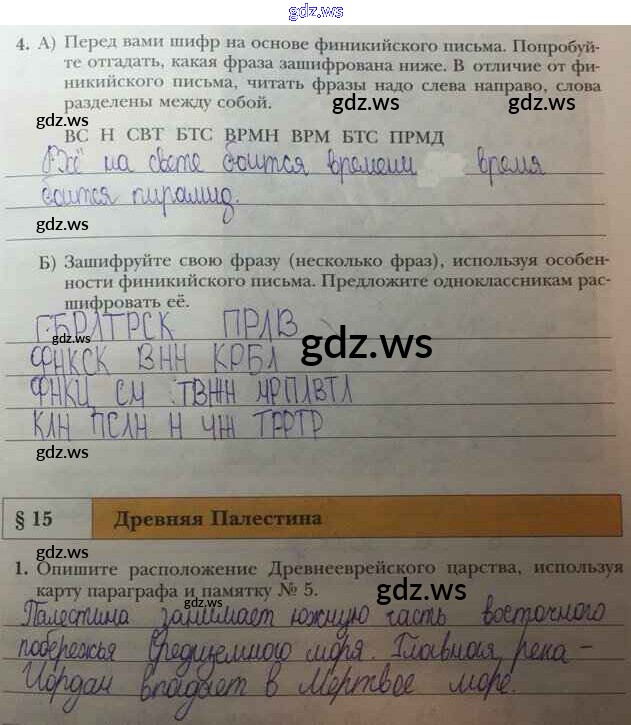 gdz.ws
4. А) Перед вами шифр на основе финикийского письма. Попробуй-
те отгадать, какая фраза зашифрована ниже. В отличие от фи-
никийского письма, читать фразы надо слева направо, слова
разделены между собой.
gdz.ws gdz.ws
ВС Н СВТ БТС ВРМН ВРМ БТС ПРМД
Всё на свете боится времени время
боится пирамид.
gdz.ws
Б) Зашифруйте свою фразу (несколько фраз), используя особен-
ности финикийского письма. Предложите одноклассникам рас-
шифровать её.
ГБРЛТРСК ПРЛВ
gdz.ws
gdz.ws
ФНКСК ВНН КРБЛ
ФНКЦ СМ ТВЖН МРПЛВТЛ
gdz.ws
КЛН ПСЛН Н ЧЖ ТРРТР
gdz.ws
§ 15 Древняя Палестина
gdz.ws
1. Опишите расположение Древнееврейского царства, используя
карту параграфа и памятку № 5.
gdz.ws
Палестина занимает южную часть восточного
побережья Средиземного моря. Главная река –
Иордан впадает в Мертвое море.
gdz.ws